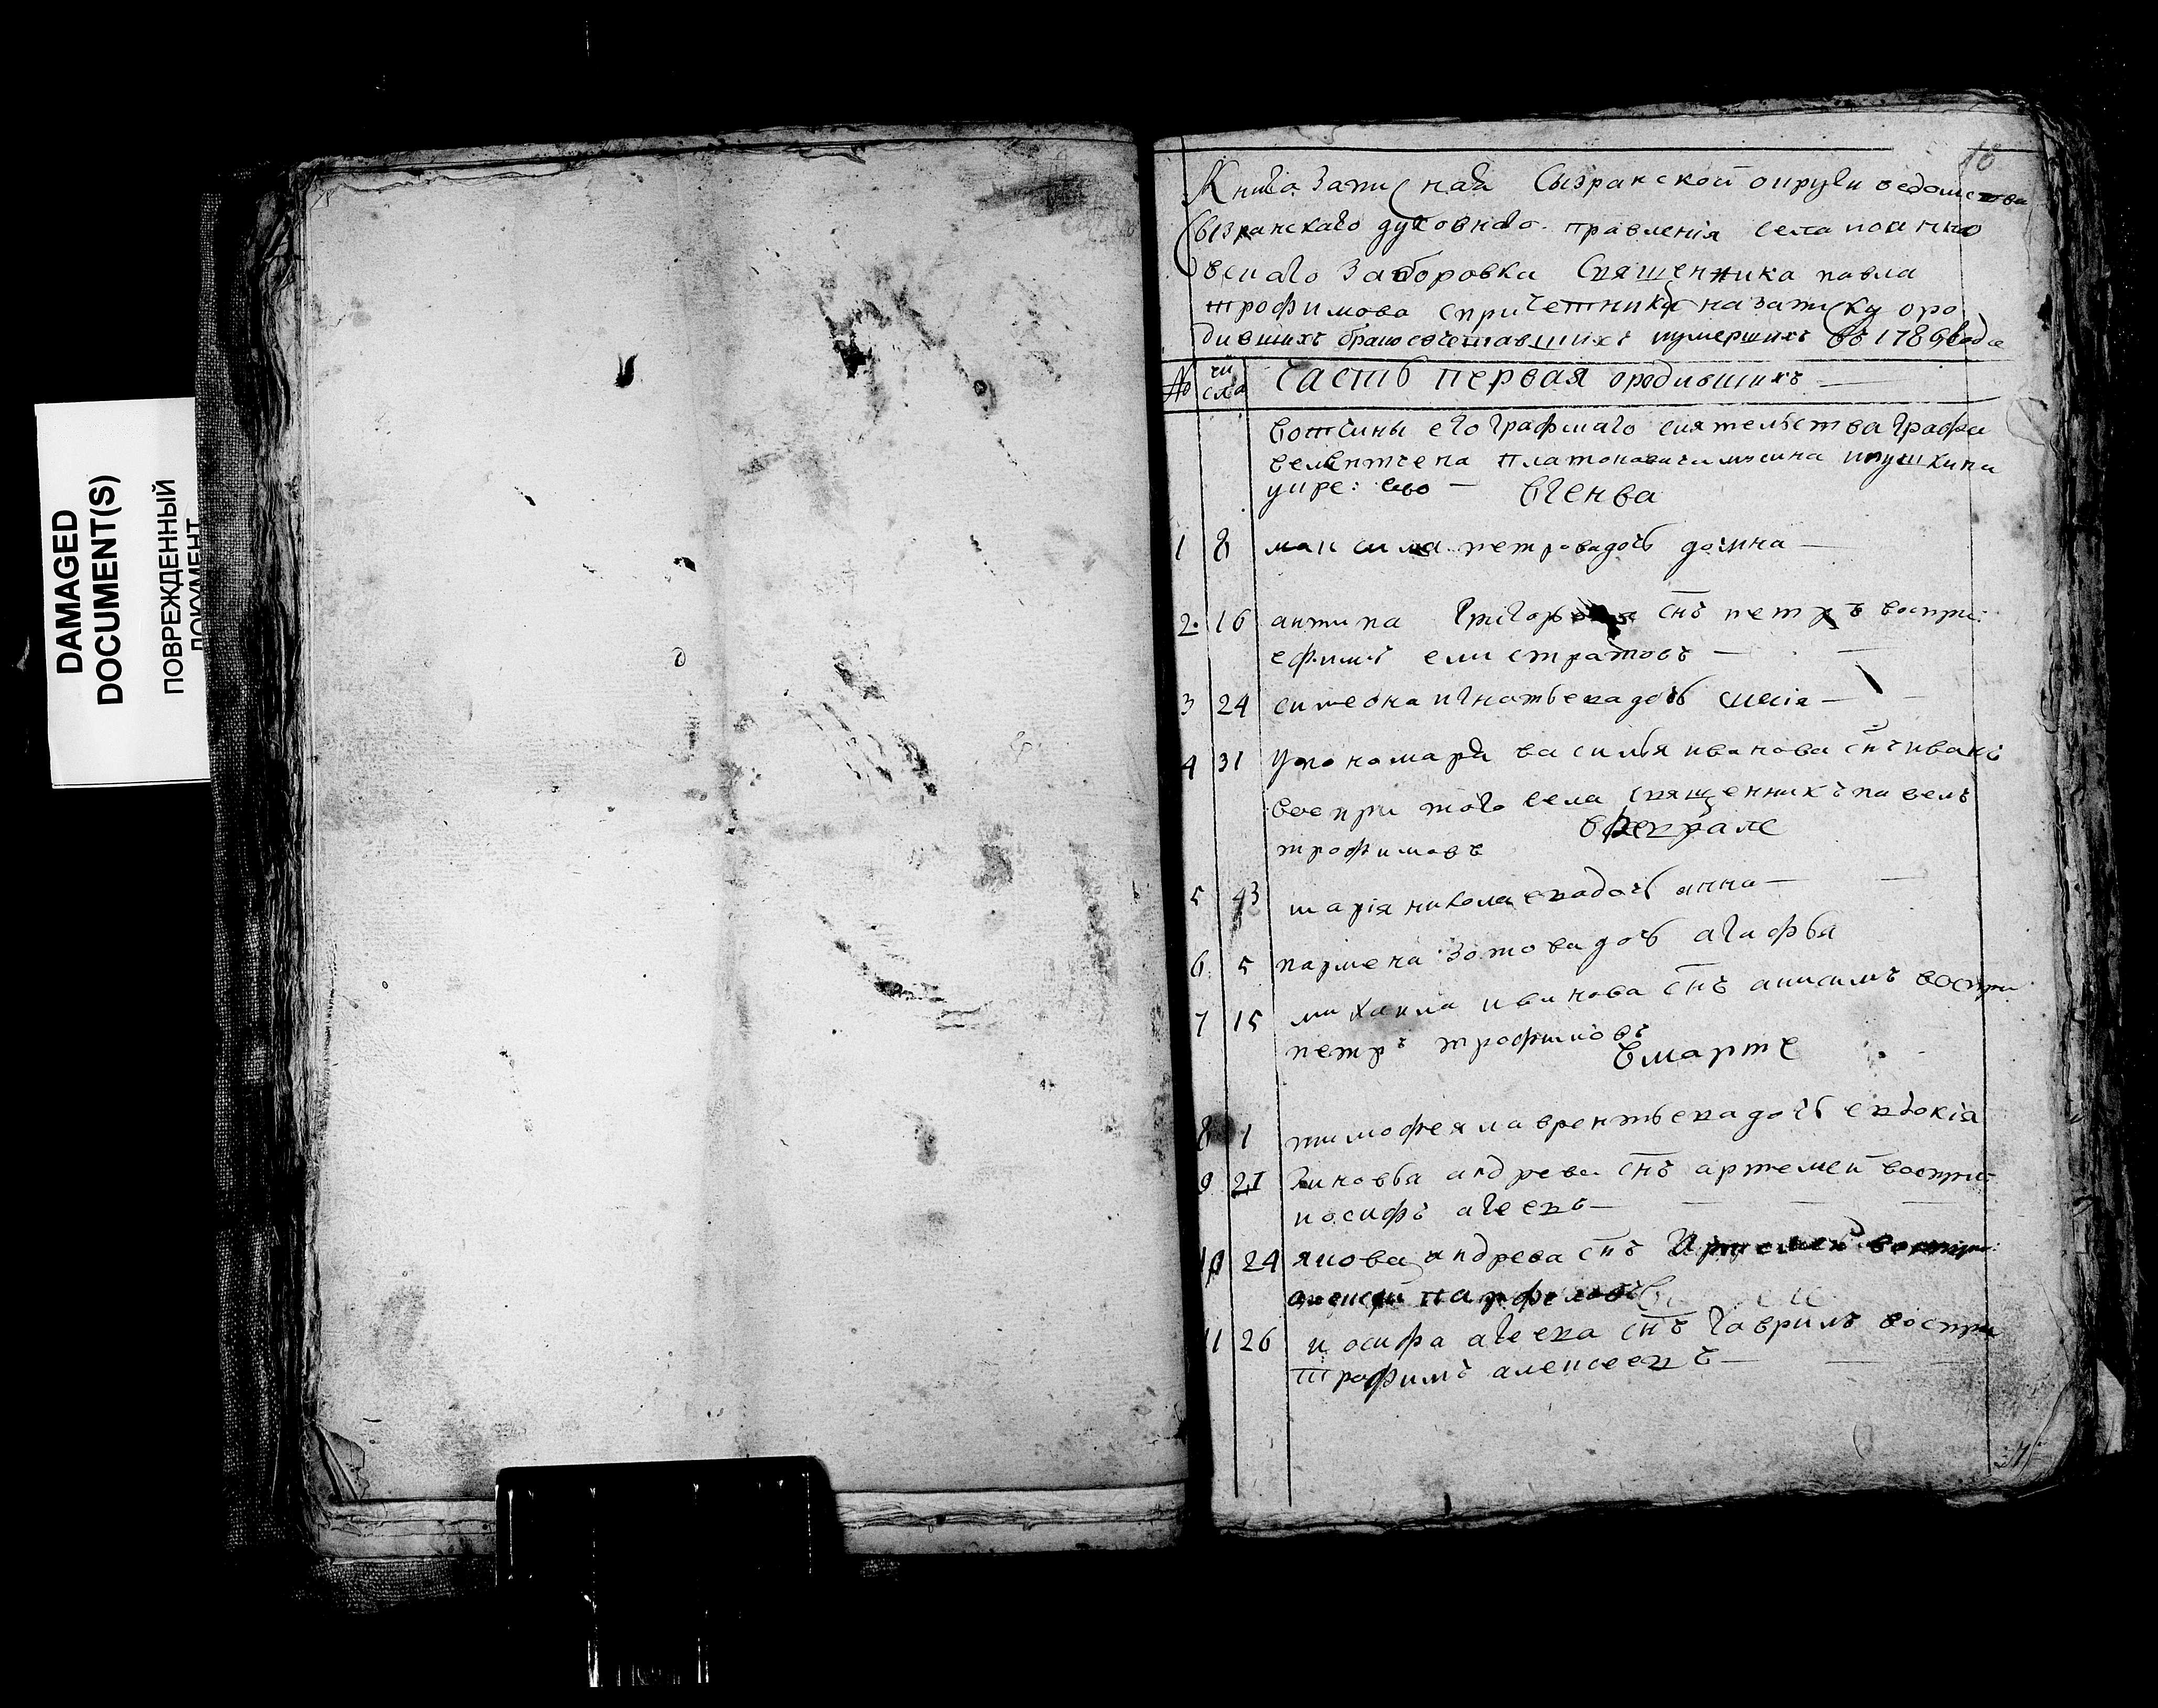 DAMAGED
DOCUMENT(S)
ПОВРЕЖДЕННЫЙ
ДОКУМЕНТ
16
Книга Записная Сызранской округи ведомства
Сызранскаго духовнаго правления села
Заборовки Священника павла
трофимова спричетники на записку оро
дившихъ бракосочетавшихъ иумершихъ въ году
№ числа Часть первая ородившихъ
вотчины его графскаго сиятельства графа
платоновича мусина пушкина
Вгенва
1 8 максима петрова дочь домна
2. 16 антипа снъ петръ воспри:
ефимъ елистратовъ
3 24 симеона игнатьева дочь
4 31 упономаря василья иванова снъ иванъ
воспри того села священникъ павелъ
трофимовъ
вфеврале
5 николаева дочь анна
6. 5 пармена зотова дочь агафья
7 15 михаила иванова снъ анисимъ воспри
петръ трофимовъ
Вмарте
8 1 тимофея лаврентьева дочь евдокия
9 21 зиновья андрева снъ артемей воспри:
иосифъ агеевъ
10 24 якова андрева снъ
11 26 иосифа агеева снъ гаврилъ воспри
трофимъ алексеевъ